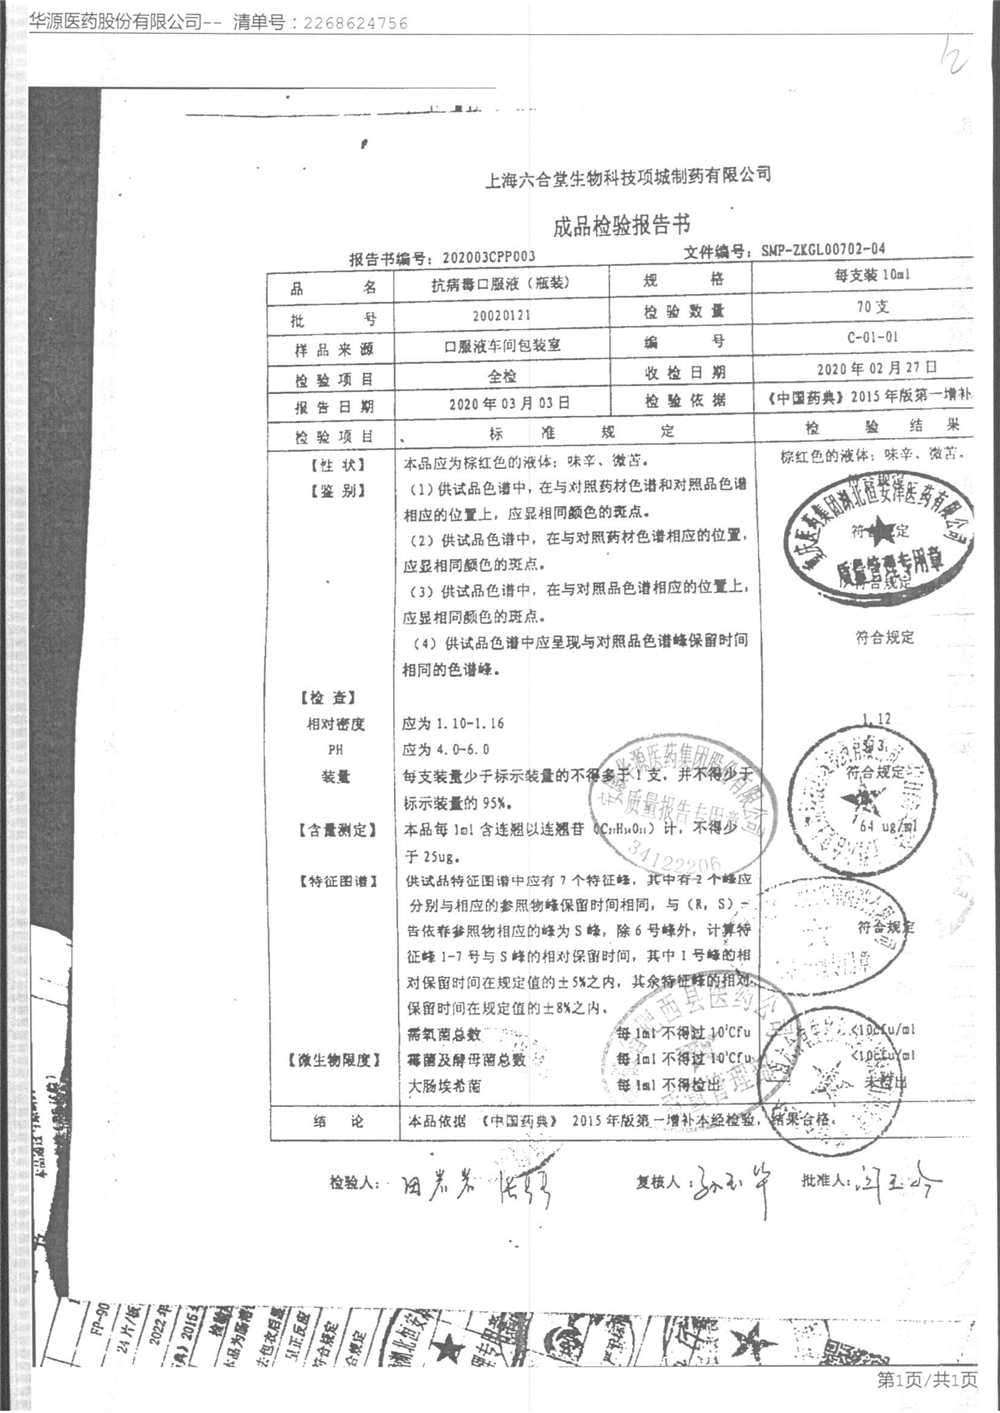 华源医药股份有限公司-- 清单号：2268624756
上海六合堂生物科技项城制药有限公司
成品检验报告书
报告书编号：202003CPP003 文件编号：SMP-ZKGL00702-04
品 名 抗病毒口服液（瓶装） 规 格 每支装 10ml
批 号 20020121 检验数量 70 支
样品来源 口服液车间包装室 编 号 C-01-01
检验项目 全检 收检日期 2020 年 02 月 27 日
报告日期 2020 年 03 月 03 日 检验依据 《中国药典》2015 年版第一增补
检验项目 标 准 规 定 检 验 结 果
【性 状】 本品应为棕红色的液体；味辛、微苦。 棕红色的液体；味辛、微苦。
【鉴 别】 （1）供试品色谱中，在与对照药材色谱和对照品色谱 符合规定
相应的位置上，应显相同颜色的斑点。
（2）供试品色谱中，在与对照药材色谱相应的位置， 符合规定
应显相同颜色的斑点。
（3）供试品色谱中，在与对照品色谱相应的位置上， 符合规定
应显相同颜色的斑点。
（4）供试品色谱中应呈现与对照品色谱峰保留时间 符合规定
相同的色谱峰。
【检 查】
相对密度 应为 1.10-1.16 1.12
PH 应为 4.0-6.0
装量 每支装量少于标示装量的不得多于 1 支，并不得少于 符合规定
标示装量的 95%。
【含量测定】 本品每 1ml 含连翘以连翘苷（C₂₇H₃₄O₁₁）计，不得少 64 ug/ml
于 25ug。
【特征图谱】 供试品特征图谱中应有 7 个特征峰，其中有 2 个峰应
分别与相应的参照物峰保留时间相同，与（R，S）-
告依春参照物相应的峰为 S 峰，除 6 号峰外，计算特 符合规定
征峰 1-7 号与 S 峰的相对保留时间，其中 1 号峰的相
对保留时间在规定值的±5%之内，其余特征峰的相对
保留时间在规定值的±8%之内。
需氧菌总数 每 1ml 不得过 10²Cfu <10cfu/ml
【微生物限度】 霉菌及酵母菌总数 每 1ml 不得过 10¹Cfu <10cfu/ml
大肠埃希菌 每 1ml 不得检出 未检出
结 论 本品依据 《中国药典》 2015 年版第一增补本经检验，结果合格。
检验人： 复核人： 批准人：
质量管理专用章
质量报告专用章
34122206
FP-90
24 片/板
2022 年
第1页/共1页